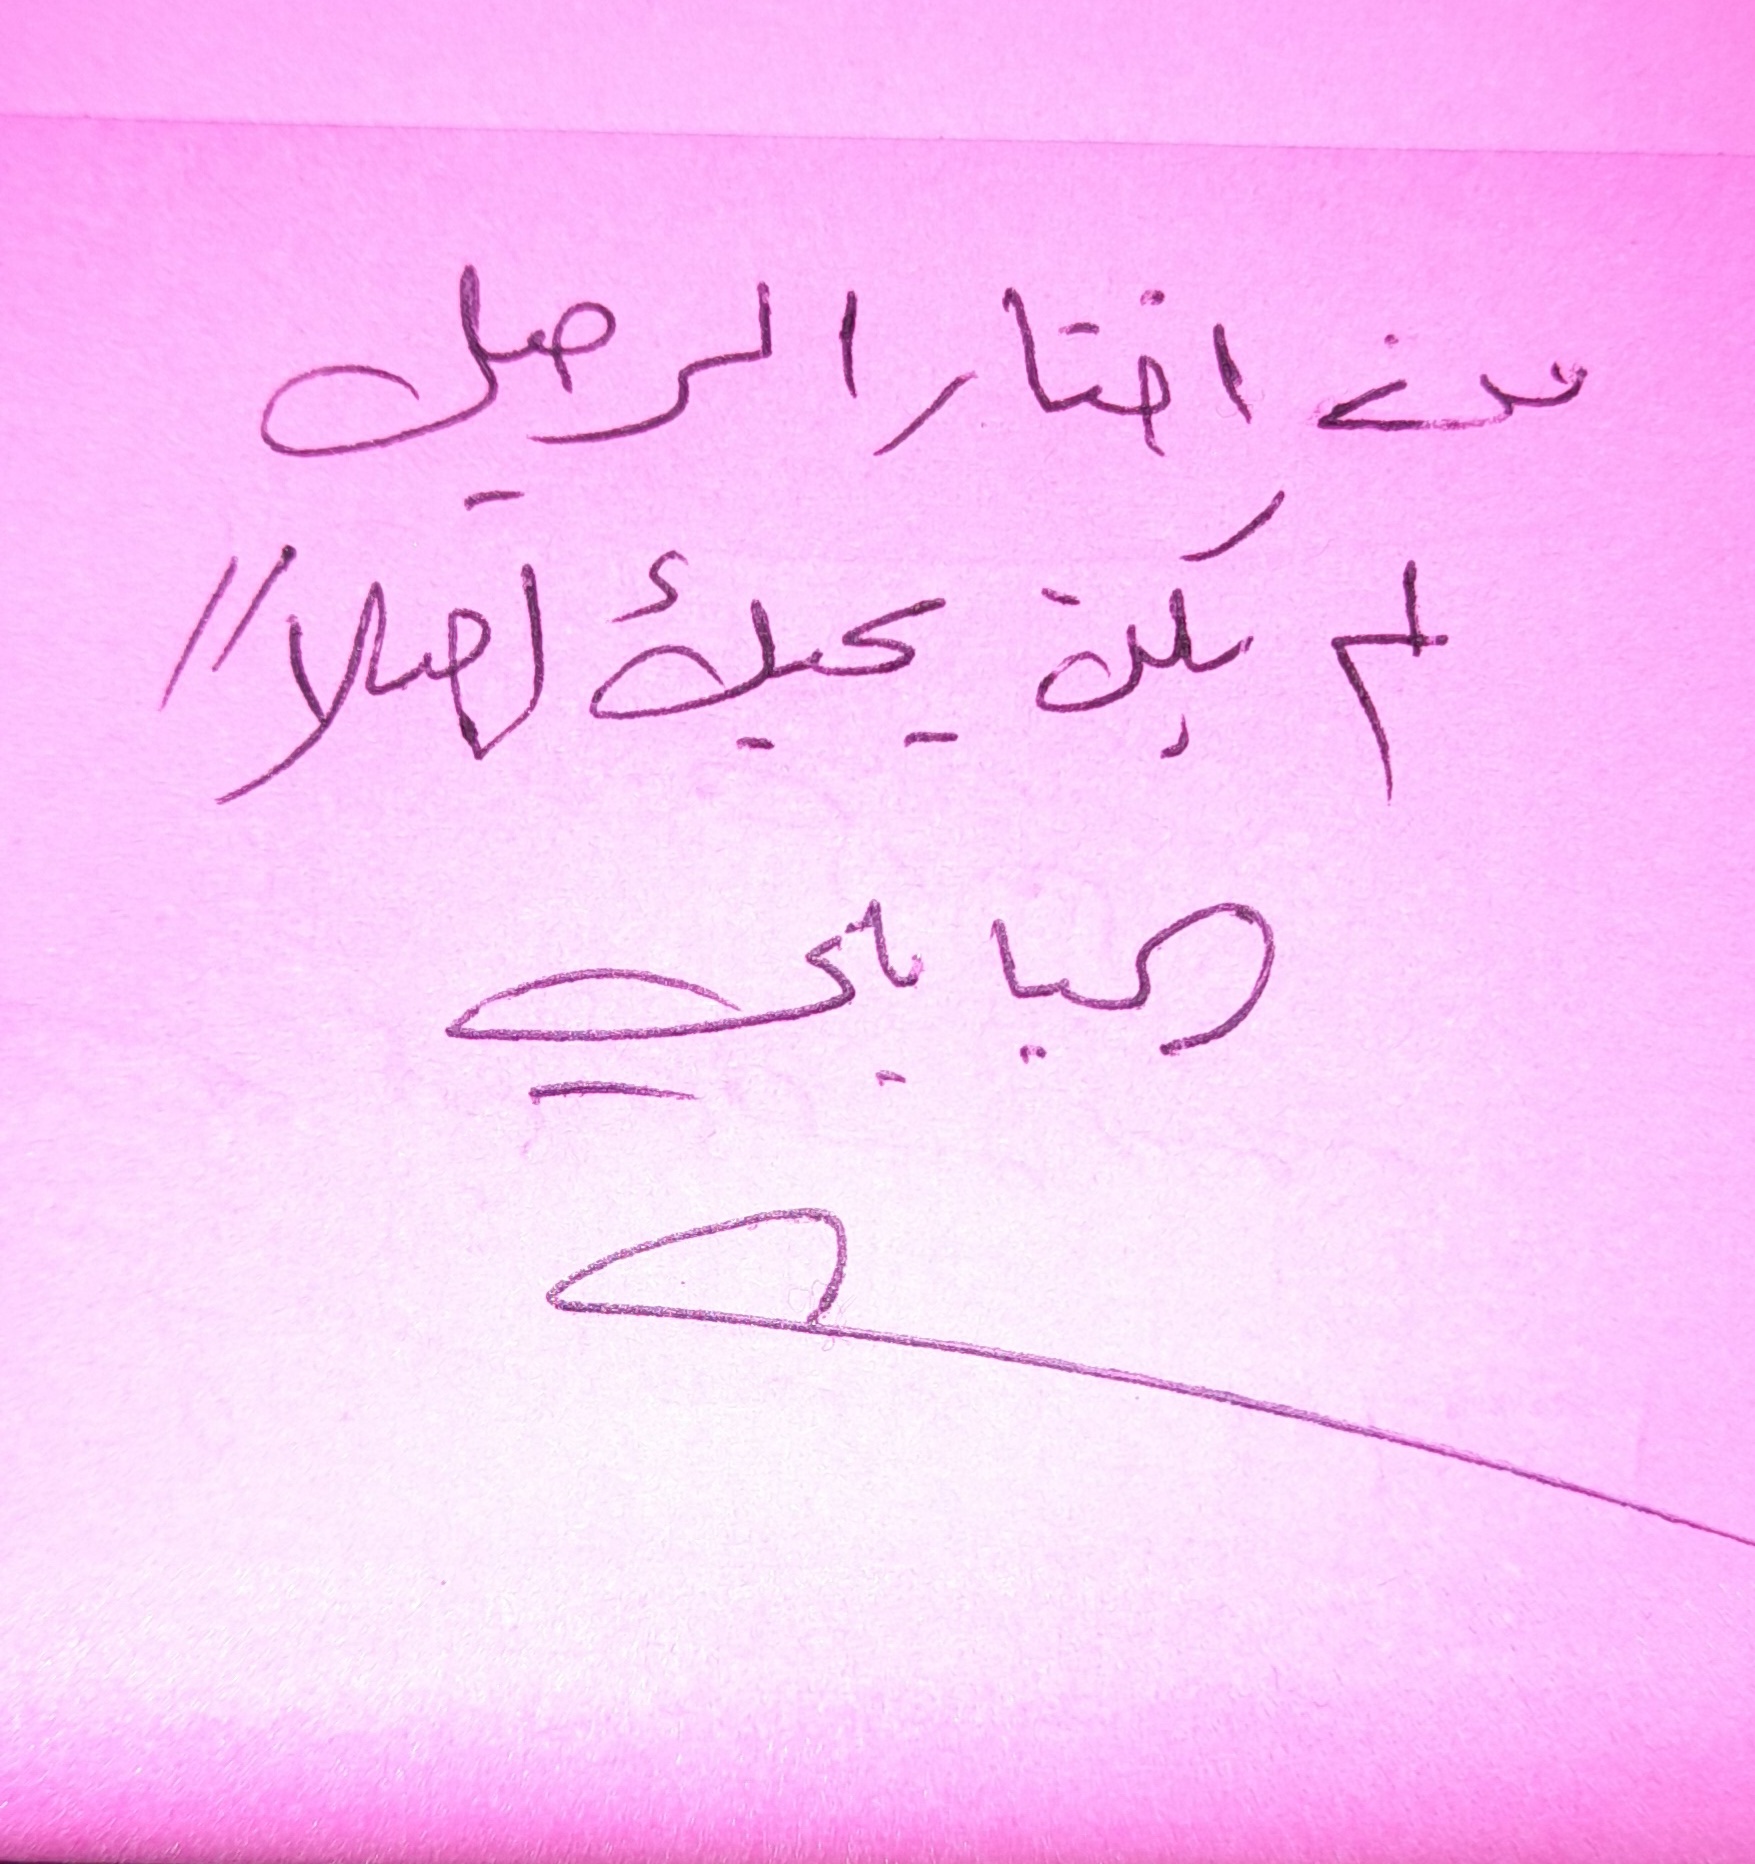 من اختار الرحيل
لم يكن يحبك أصلاً